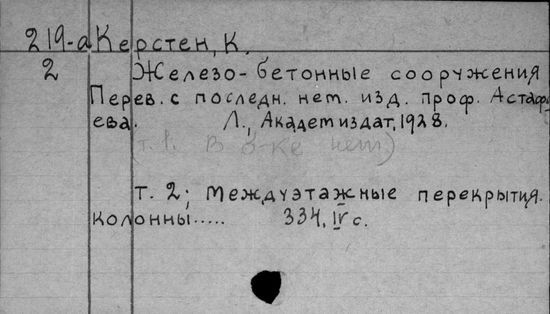 219-а Керстен, К.
2 Железо-бетонные сооружения
Перев. с последн. нем. изд. проф. Астафь
ева. Л., Академиздат, 1928.
(т. 1. в б-ке нет)
т. 2; Междуэтажные перекрытия.
колонны..... 334, IV с.